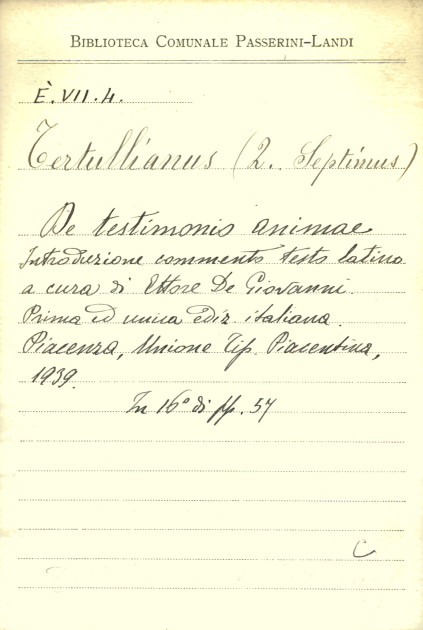 BIBLIOTECA COMUNALE PASSERINI-LANDI
E. VII. 4.
Tertullianus (2. Septimus)
De testimonio animae
Introduzione commento testo latino
a cura di Ettore De Giovanni.
Prima ed unica ediz. italiana.
Piacenza, Unione Tip. Piacentina,
1939.
In 16° di pp. 57
C